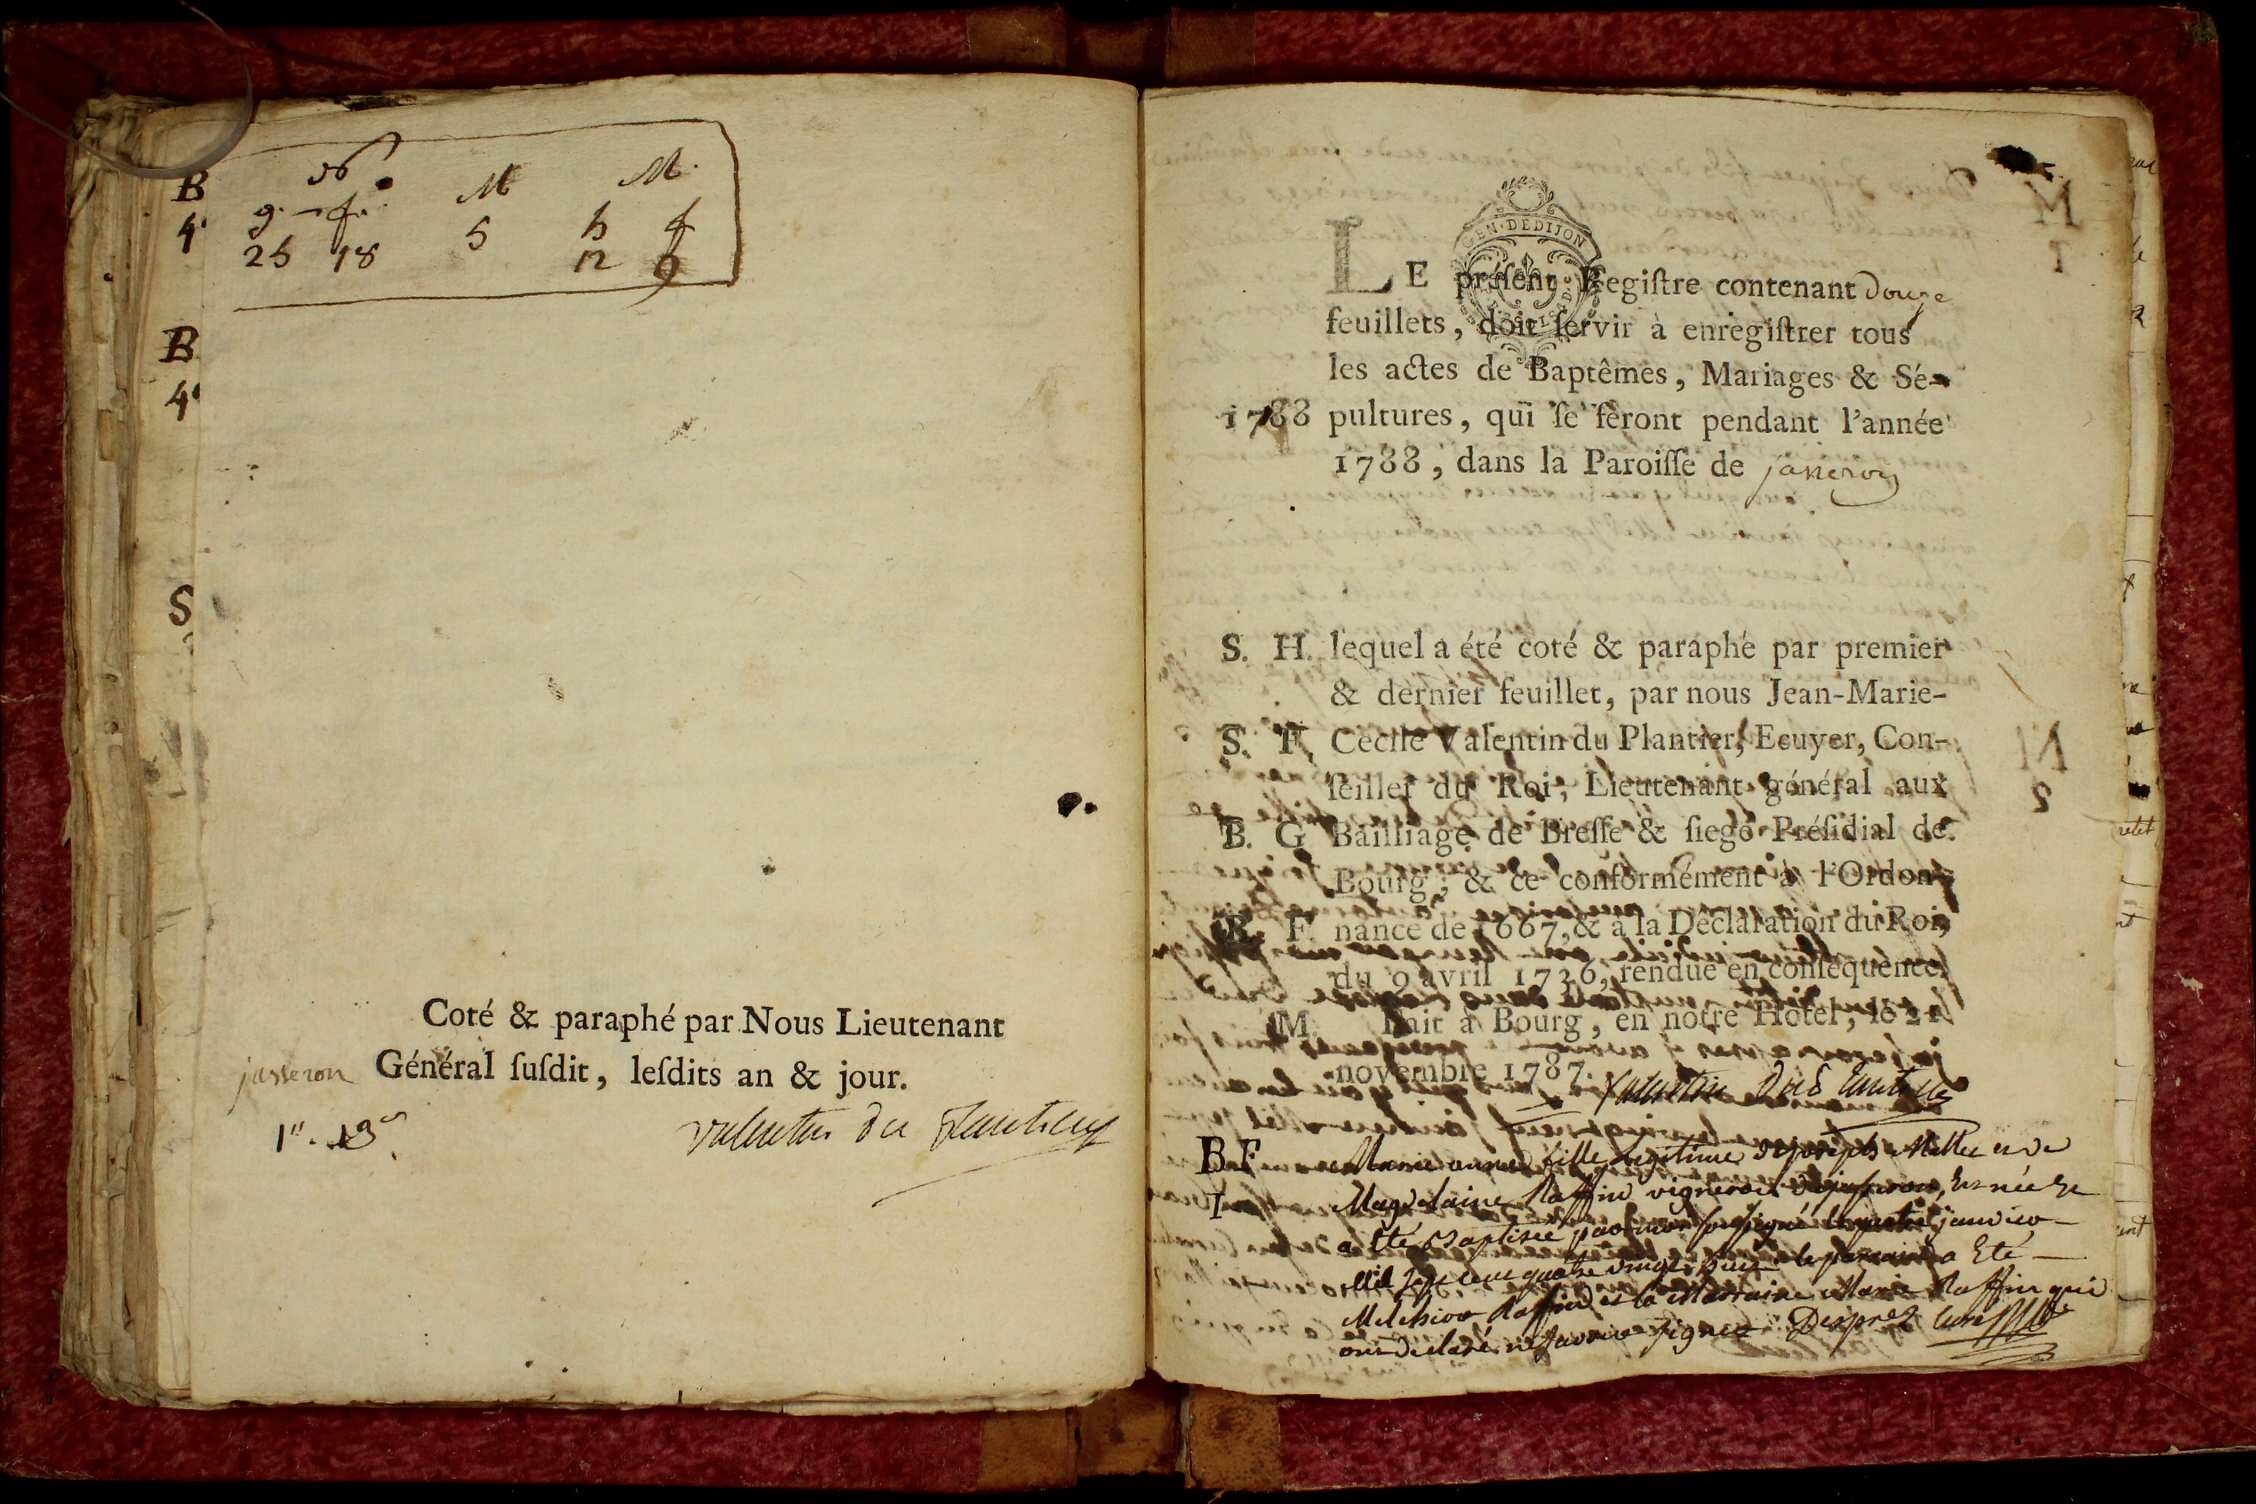 B
4
B
4
S
M M.
g. f.
25 18 5 12 9
Coté & paraphé par Nous Lieutenant
jasseron Général ſuſdit, leſdits an & jour.
Valentin du Plantier
GEN·DEDIJON
LE préſent Regiſtre contenant Douze
feuillets, doit ſervir à enregiſtrer tous
les actes de Baptêmes, Mariages & Sé-
1788 pultures, qui ſe feront pendant l'année
1788, dans la Paroiſſe de jasseron
S. H. lequel a été coté & paraphé par premier
& dernier feuillet, par nous Jean-Marie-
S. F. Cécile Valentin du Plantier, Ecuyer, Con-
ſeiller du Roi, Lieutenant général aux
B. G Bailliage de Breſſe & ſiege Préſidial de
Bourg; & ce conformément à l'Ordon-
B. F. nance de 1667, & à la Déclaration du Roi,
du 9 avril 1736, rendue en conſéquence.
M. Fait à Bourg, en notre Hôtel, le 21
novembre 1787. Valentin Du Plantier
B. F. Marie anne fille légitime de joseph Millet et de
1 Magdelaine Raffin vignerons de jasseron, Est née et
a été Baptisée par moi soussigné le quatre janvier
Mil sept cent quatre vingt huit le parrain a Eté
Melchior Raffin et la Marraine Marie Raffin qui
ont déclaré ne savoir signer Desprez curé